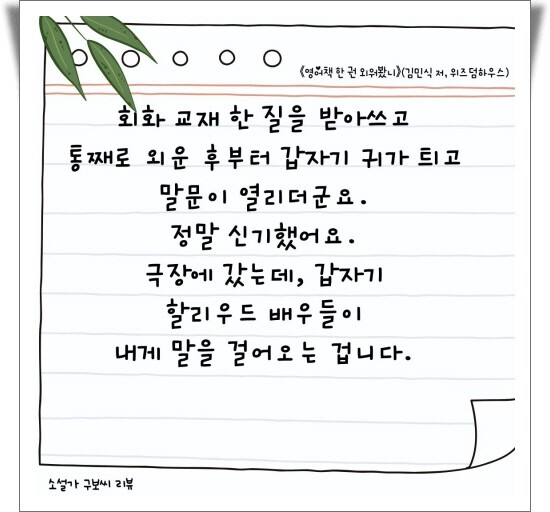 《영어책 한 권 외워봤니》(김민식 저, 위즈덤하우스)
회화 교재 한 질을 받아쓰고
통째로 외운 후부터 갑자기 귀가 틔고
말문이 열리더군요.
정말 신기했어요.
극장에 갔는데, 갑자기
할리우드 배우들이
내게 말을 걸어오는 겁니다.
소설가 구보씨 리뷰